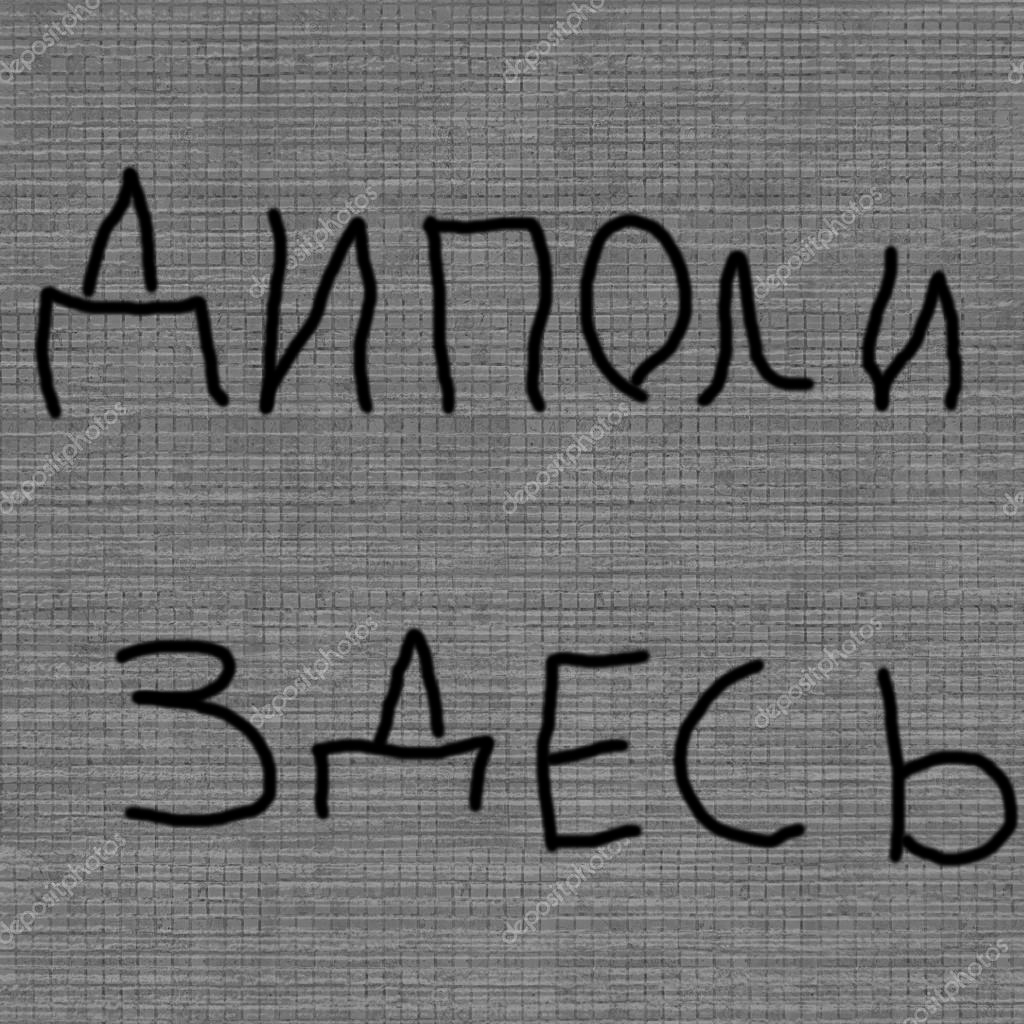 ДИПОЛИ
ЗДЕСЬ
depositphotos